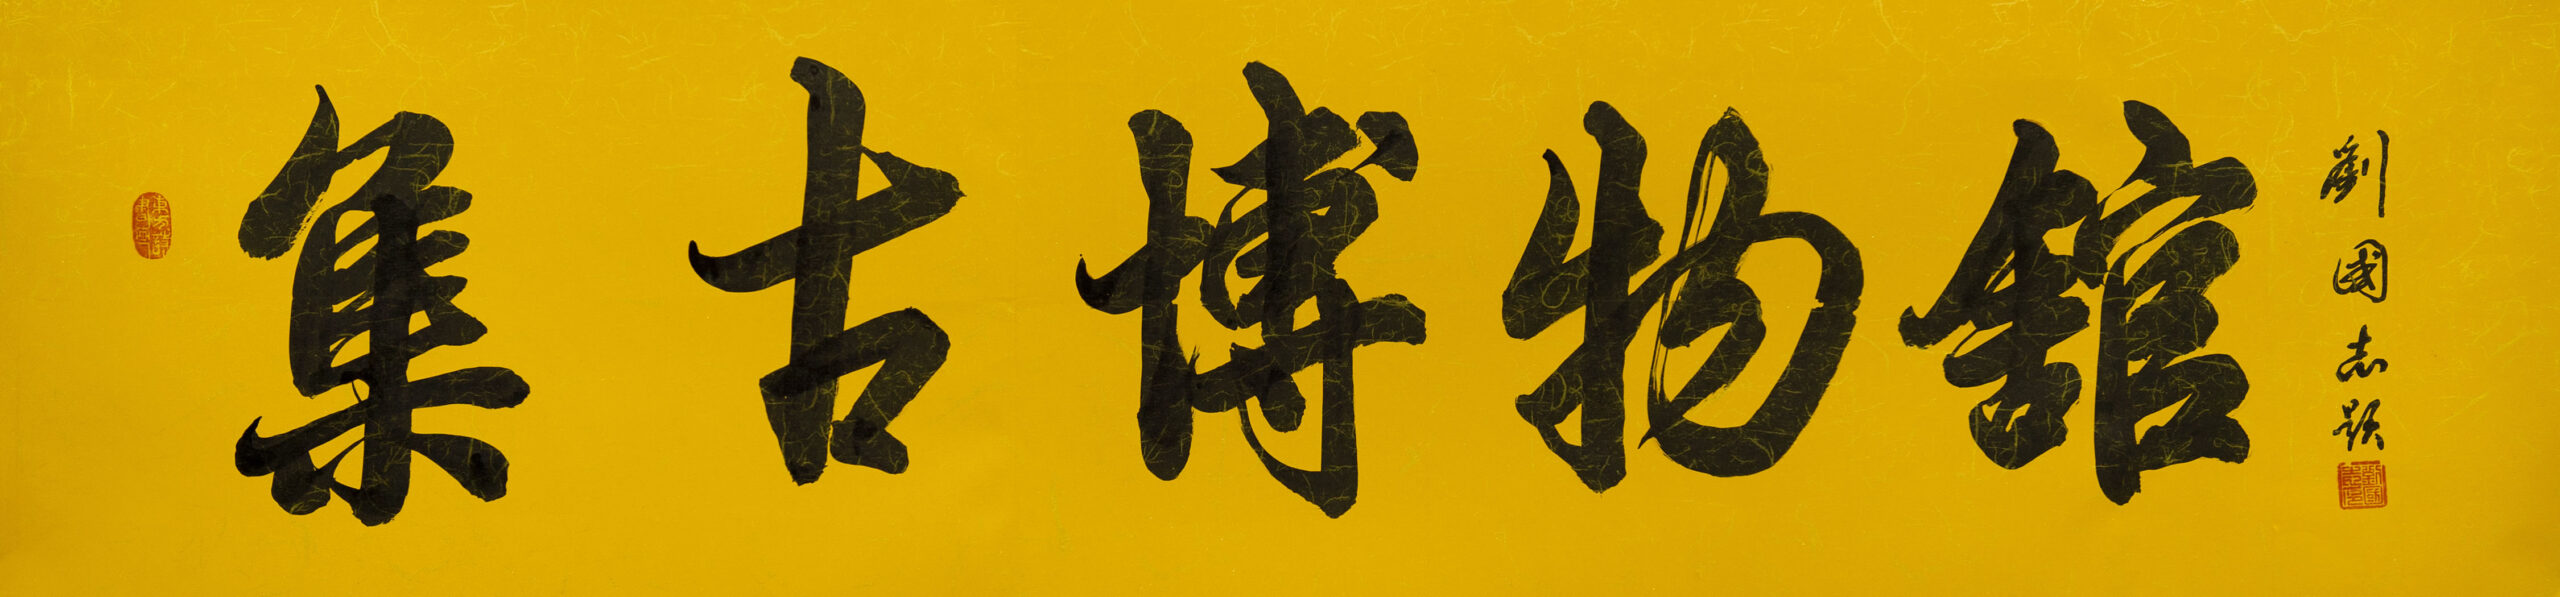 集古博物舘
劉國志題